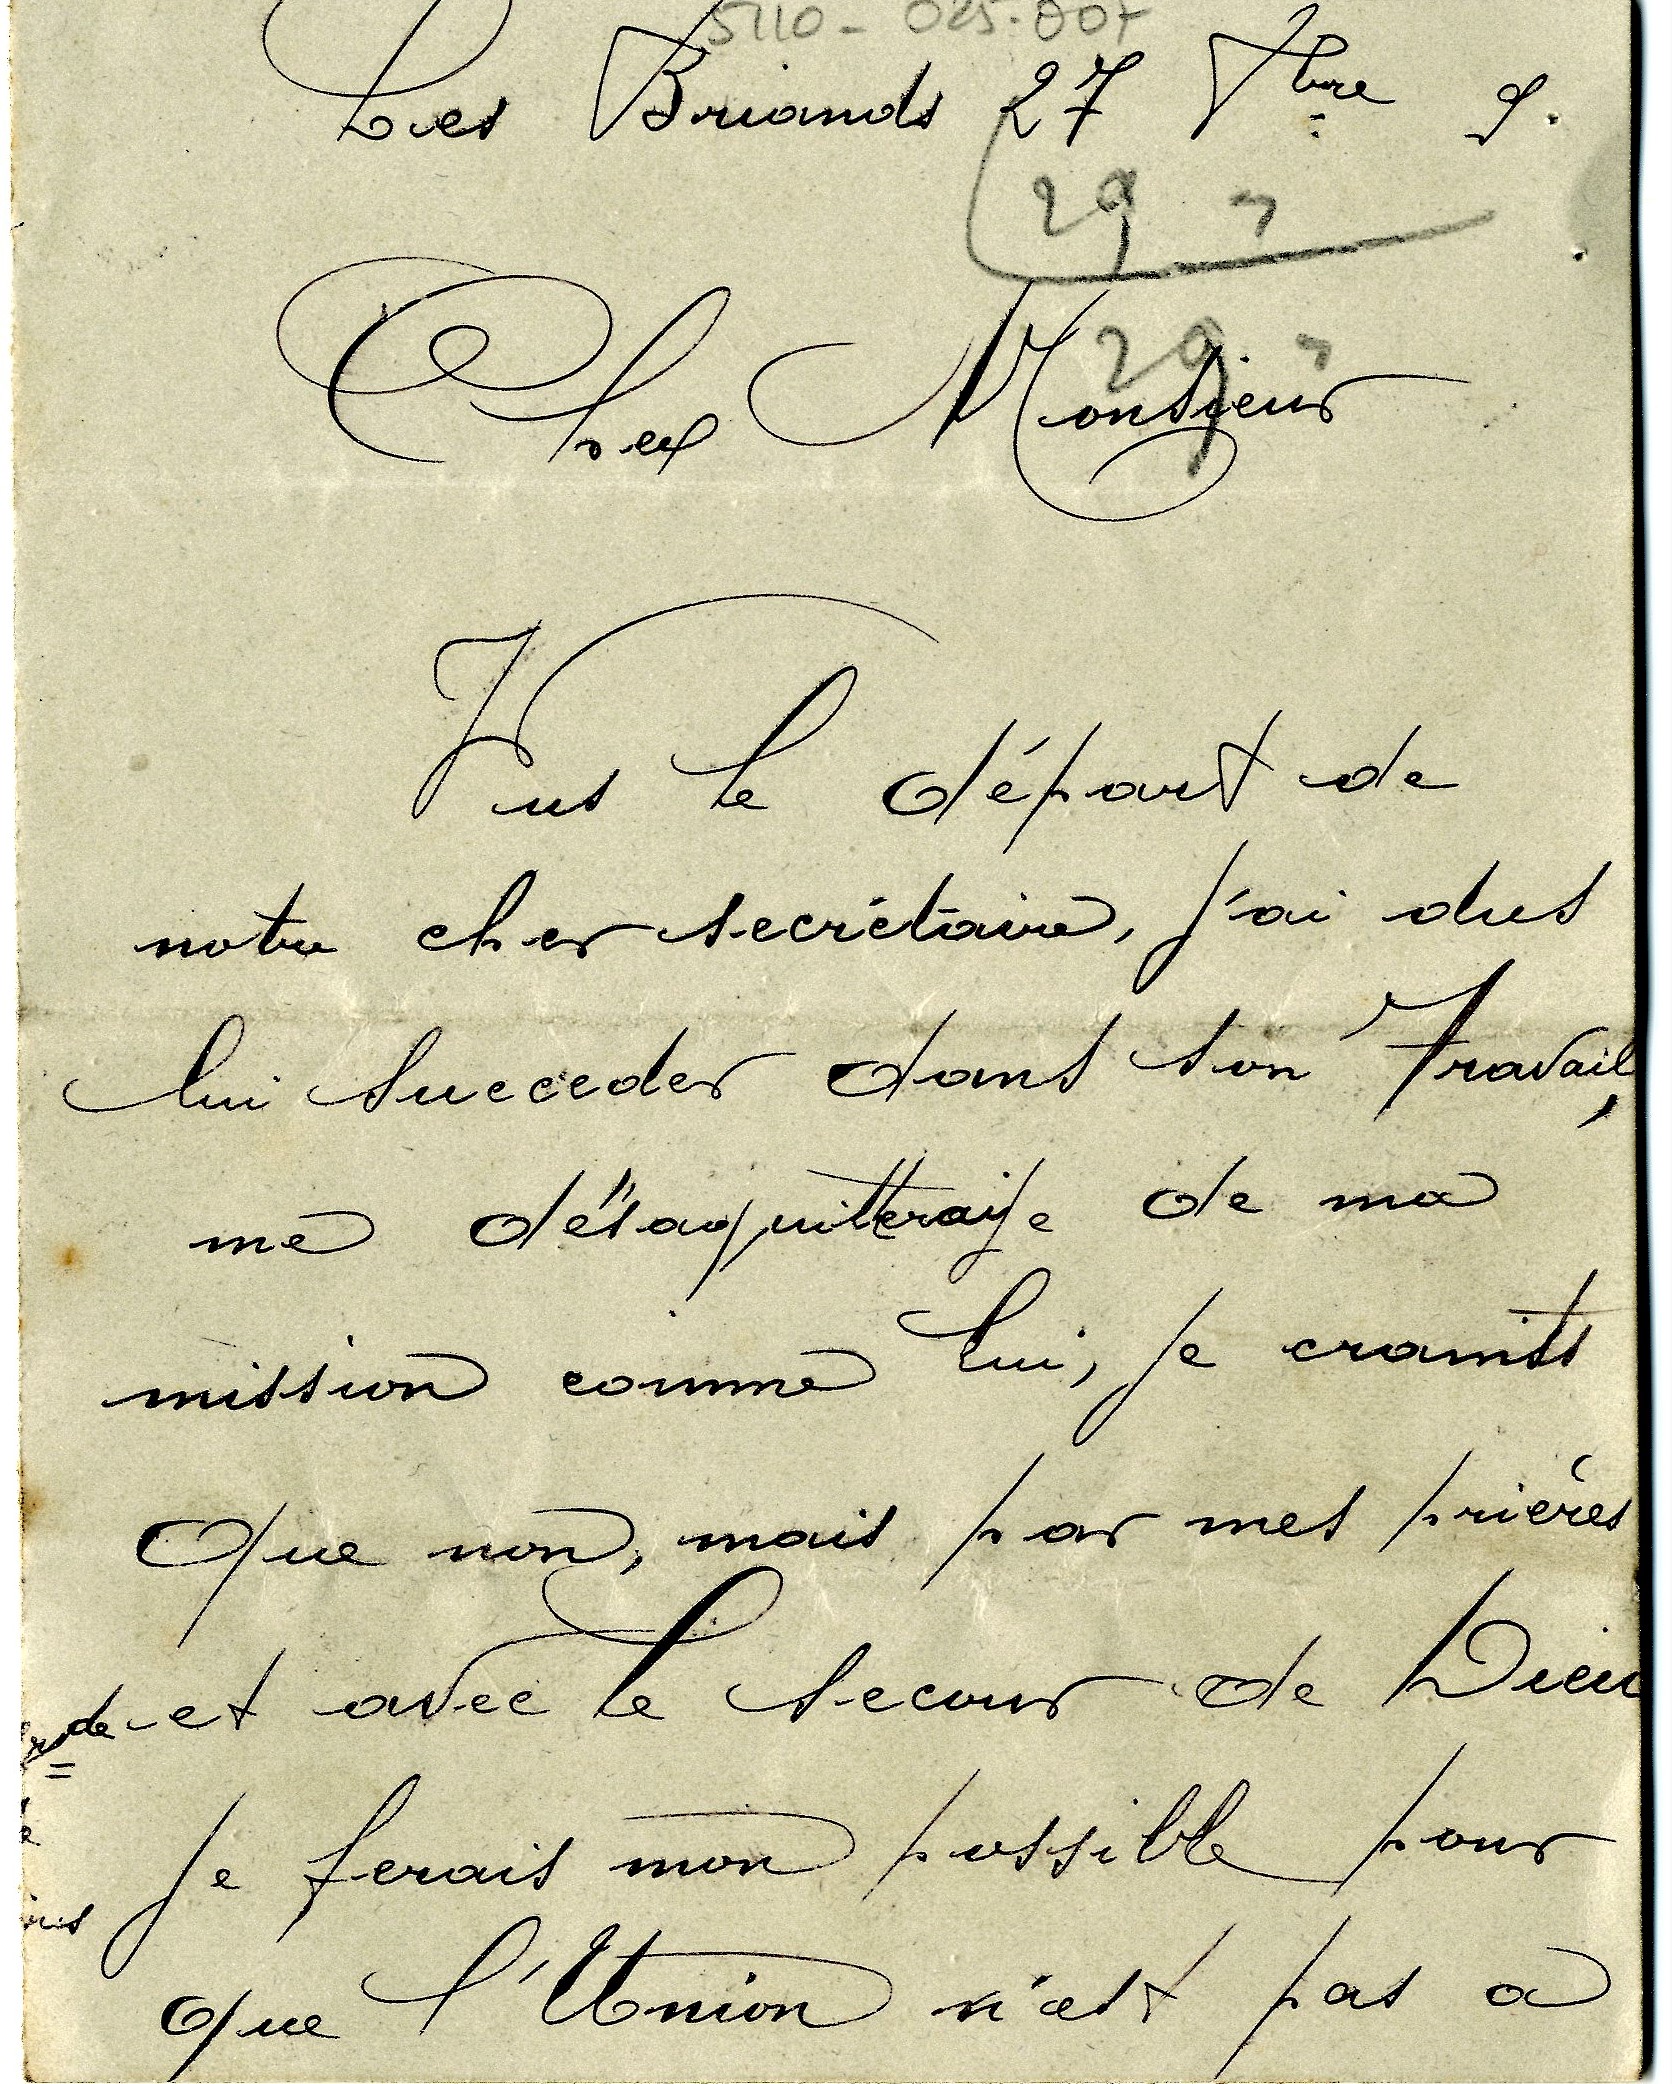 5110-025.007
Les Briands 27 7bre 9.
29 7
Cher Monsieur
29 7
Vus le départ de
notre cher secrétaire, j'ai dus
lui succeder dans son Travail,
me désaquitteraije de ma
mission comme lui, je craints
que non, mais par mes prières
et avec le secour de Dieu
de
je ferais mon possible pour
que l'Union n'est pas a